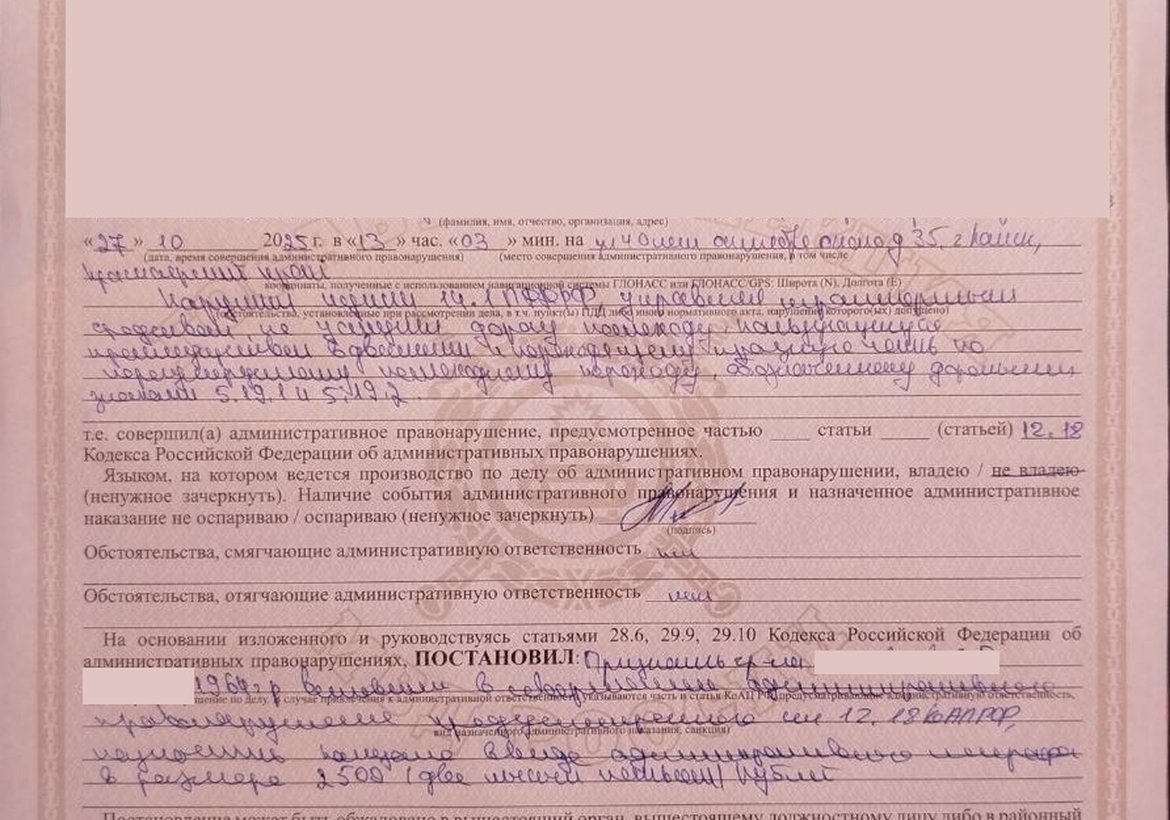 (фамилия, имя, отчество, организация, адрес)
«27» 10 2025 г. в «13» час. «03» мин. на ул 40 лет октября д 35, г Канск,
(дата, время совершения административного правонарушения) (место совершения административного правонарушения, в том числе
Красноярский край
координаты, полученные с использованием навигационной системы ГЛОНАСС или ГЛОНАСС/GPS: Широта (N), Долгота (E)
Нарушил 14.1 ПДД РФ, управляя транспортным
(обстоятельства, установленные при рассмотрении дела, в т.ч. пункт(ы) ПДД либо иного нормативного акта, нарушение которого(ых) допущено)
средством не уступил дорогу пешеходу, пользующемуся
преимуществом в движении и переходящему проезжую часть по
нерегулируемому пешеходному переходу, обозначенному дорожными
знаками 5.19.1 и 5.19.2.
т.е. совершил(а) административное правонарушение, предусмотренное частью ____ статьи _____ (статьей) 12.18
Кодекса Российской Федерации об административных правонарушениях.
Языком, на котором ведется производство по делу об административном правонарушении, владею / не владею
(ненужное зачеркнуть). Наличие события административного правонарушения и назначенное административное
наказание не оспариваю / оспариваю (ненужное зачеркнуть)
(подпись)
Обстоятельства, смягчающие административную ответственность нет
Обстоятельства, отягчающие административную ответственность нет
На основании изложенного и руководствуясь статьями 28.6, 29.9, 29.10 Кодекса Российской Федерации об
административных правонарушениях, ПОСТАНОВИЛ: Признать гр-на
1964 г.р виновным в совершении административного
шение по делу, в случае привлечения к административной ответственности указываются часть и статья КоАП РФ, предусматривающие административную ответственность,
правонарушения предусмотренного ст 12.18 КоАП РФ,
вид назначенного административного наказания, санкция)
назначить наказание в виде административного штрафа
в размере 2500 (две тысячи пятьсот) рублей
Постановление может быть обжаловано в вышестоящий орган, вышестоящему должностному лицу либо в районный